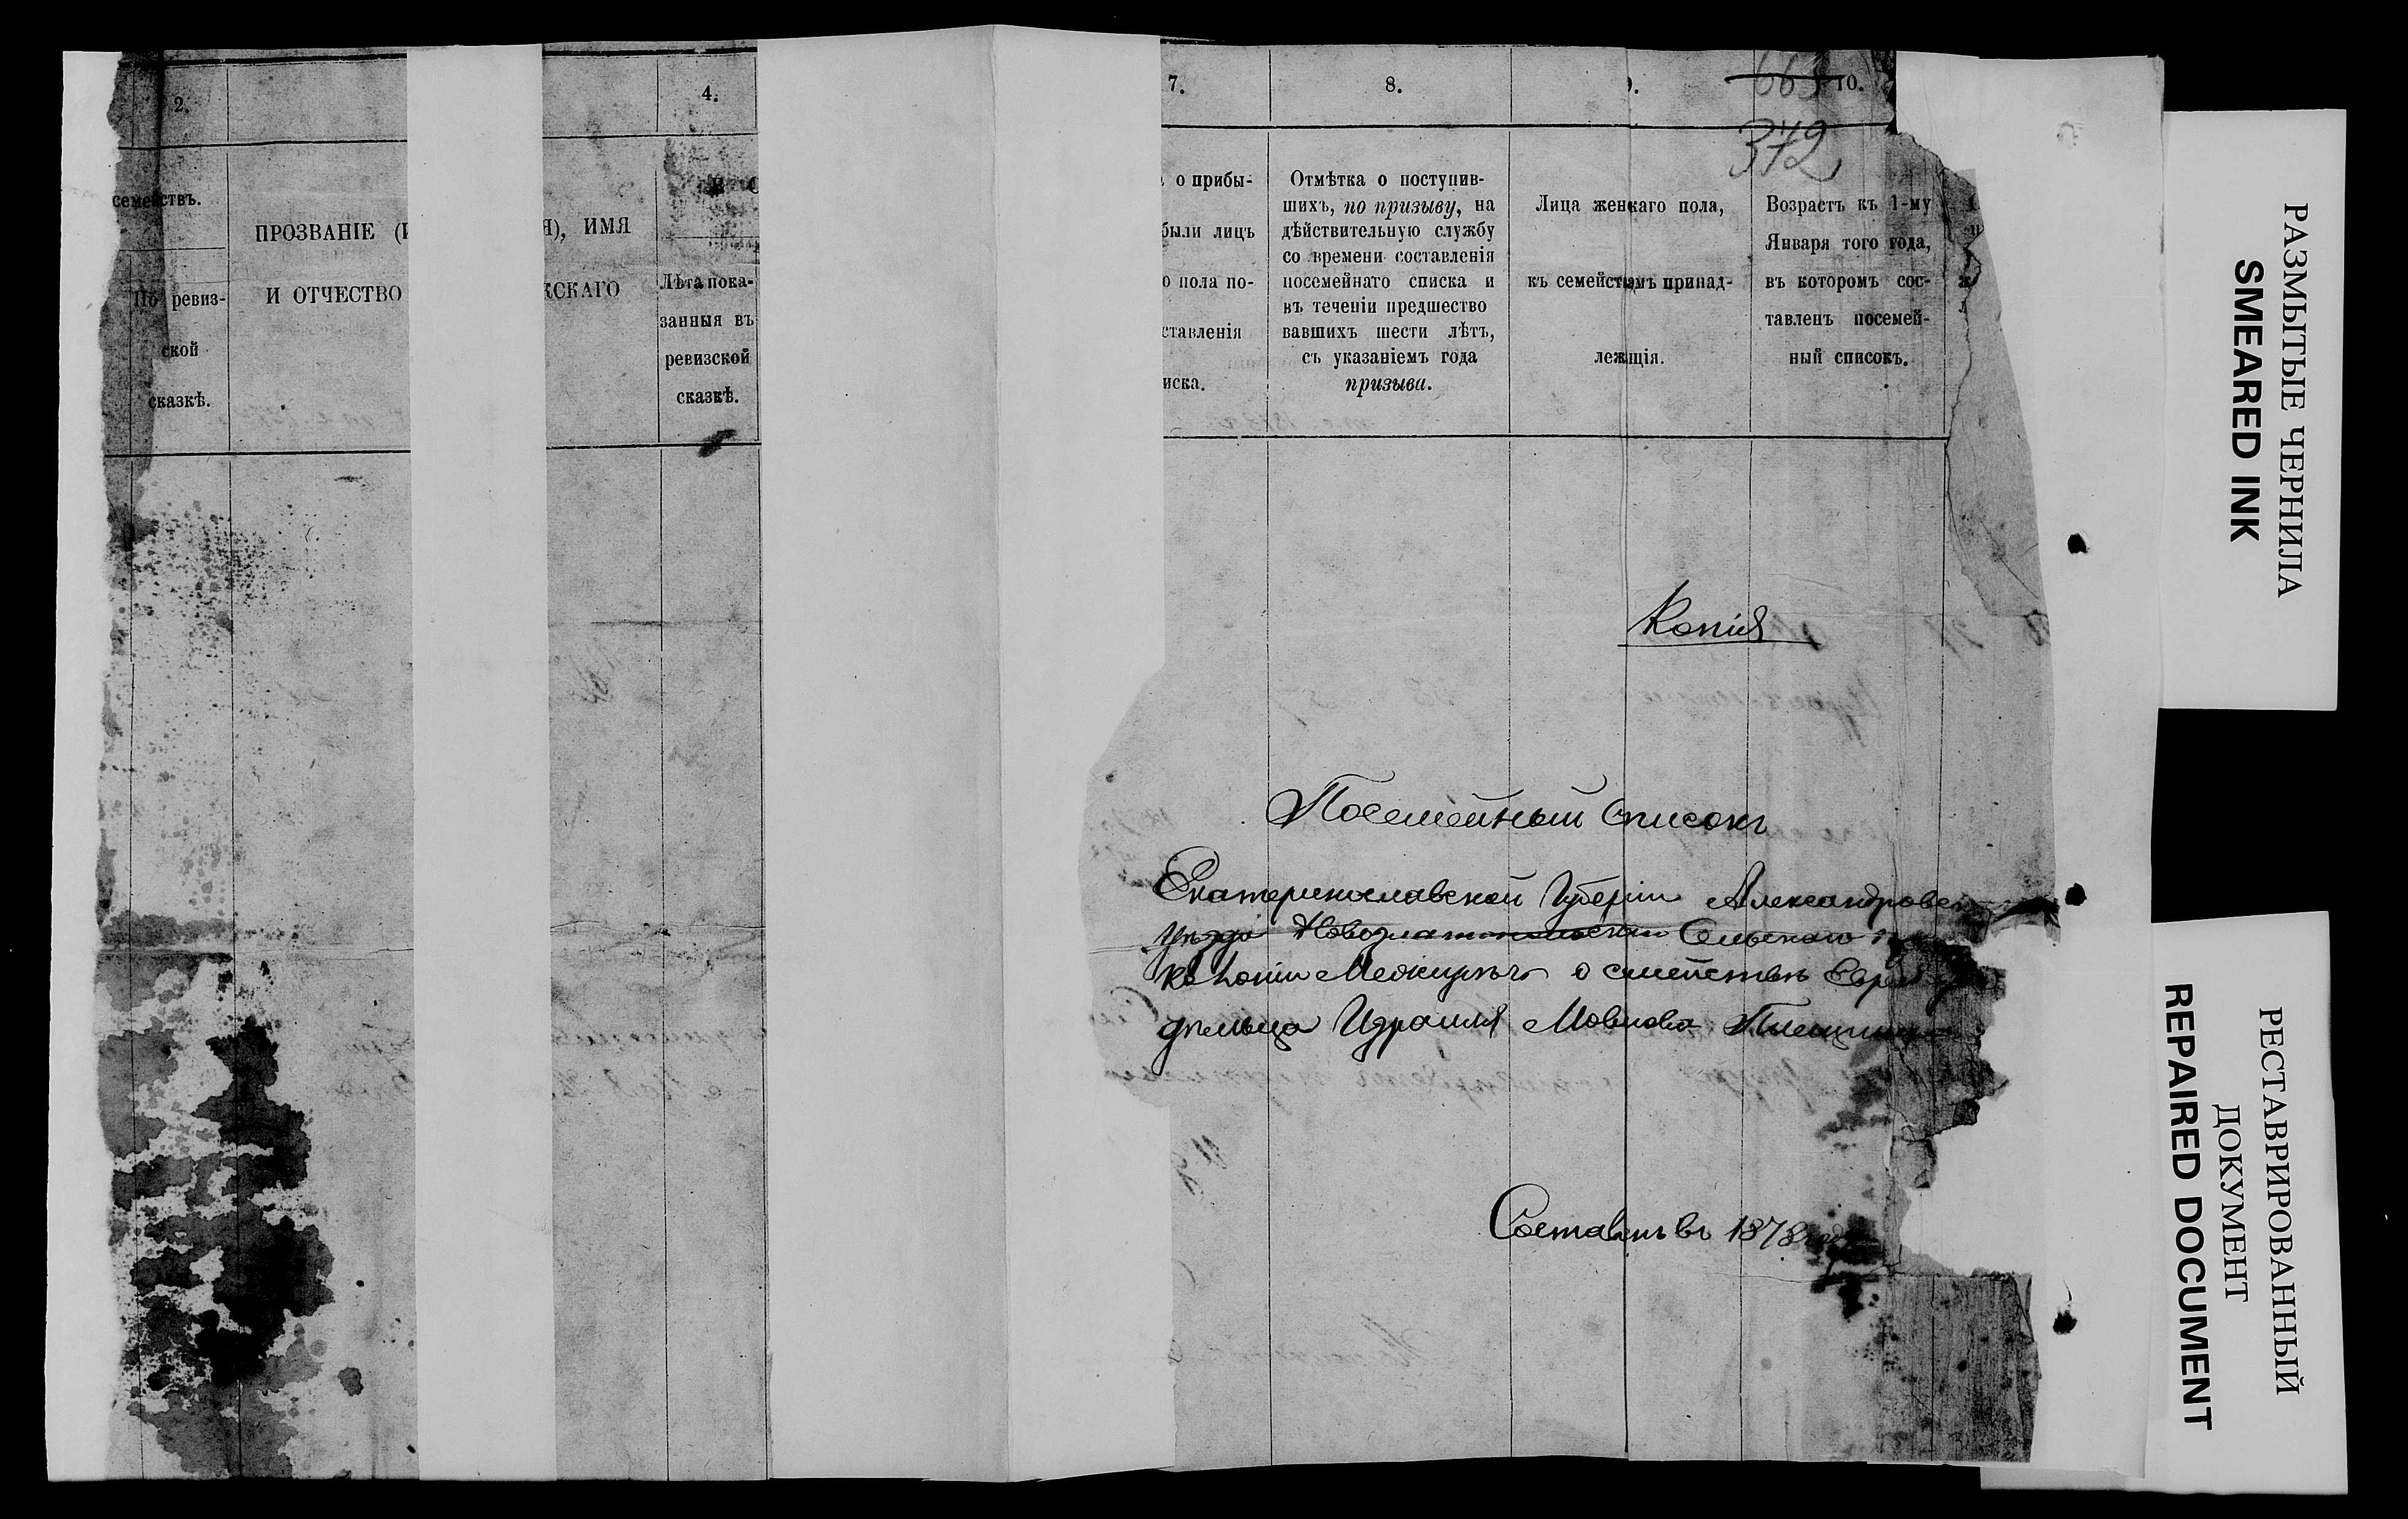 2.
4.
семействъ.
По ревиз-
ской
сказкѣ.
ПРОЗВАНІЕ (И
Я), ИМЯ
И ОТЧЕСТВО
ЖСКАГО
Лѣта пока-
занныя въ
ревизской
сказкѣ.
7.
8.
663
10.
372
о прибы-
были лицъ
о пола по-
ставленія
иска.
Отмѣтка о поступив-
шихъ, по призыву, на
дѣйствительную службу
со времени составленія
посемейнаго списка и
въ теченіи предшество
вавшихъ шести лѣтъ,
съ указаніемъ года
призыва.
Лица женскаго пола,
къ семействамъ принад-
лежащія.
Возрастъ къ 1-му
Января того года,
въ которомъ сос-
тавленъ посемей-
ный списокъ.
Копія
Посемейный Списокъ
Екатеринославской Губерніи Александровс
уѣзда Новозлатопольскаго Сельскаго
колоніи Межиричъ о семействѣ Евре
дѣльца Израиля Мовшова
Составленъ въ 1878 го
РАЗМЫТЫЕ ЧЕРНИЛА
SMEARED INK
РЕСТАВРИРОВАННЫЙ
ДОКУМЕНТ
REPAIRED DOCUMENT